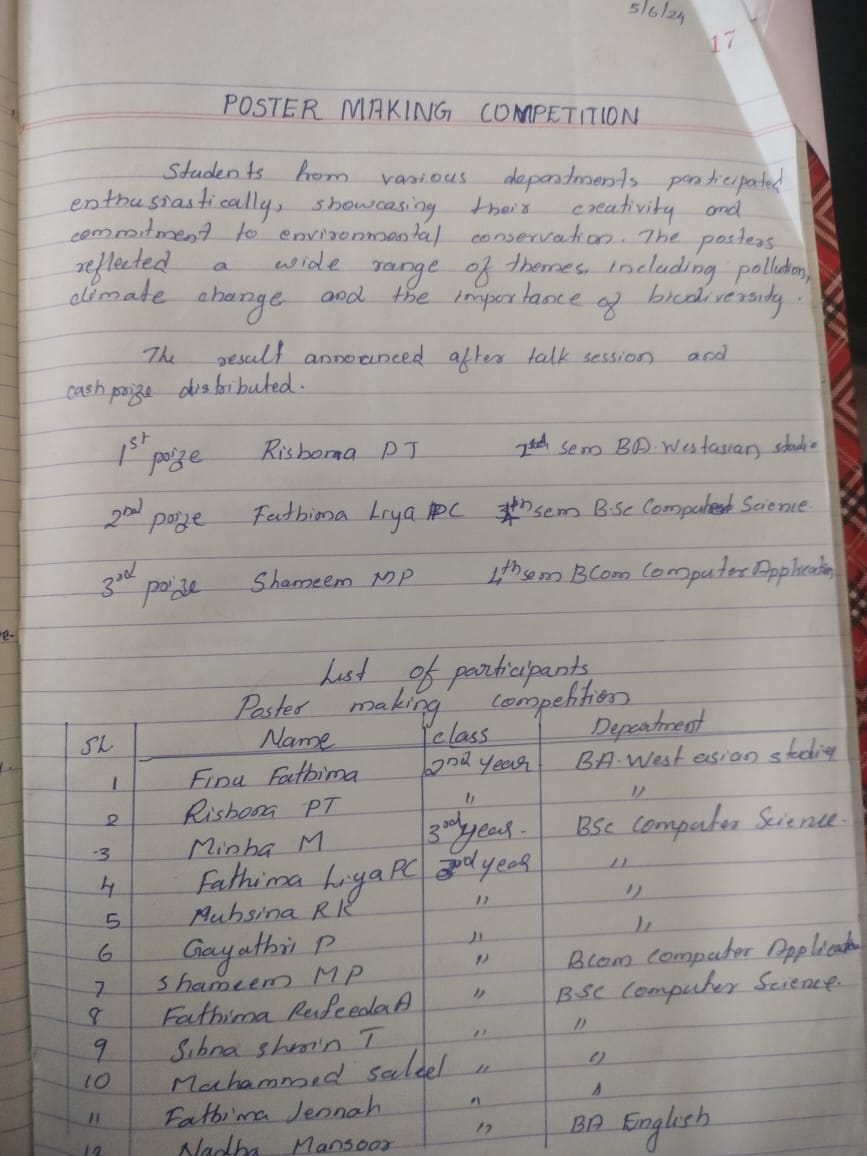 5/6/24
17
POSTER MAKING COMPETITION
Students from various departments participated
enthusiastically, showcasing their creativity and
commitment to environmental conservation. The posters
reflected a wide range of themes, including pollution,
climate change and the importance of biodiversity.
The result announced after talk session and
cash prize distributed.
1st prize Risbona PT sem BA. Westasian studie
2nd prize Fathima Liya PC sem B.Sc Computer Science.
3rd prize Shameem MP 4th sem BCom Computer Application
List of participants
Poster making competition
SL Name class Depeatment
1 Finu Fathima 2nd year BA. West asian studies
2 Risbona PT " "
3 Minha M 3rd year. BSc Computer Science.
4 Fathima Liya PC year "
5 Muhsina RK " "
6 Gayathri P " "
7 Shameem MP " Bcom Computer Applicatio
8 Fathima A " BSC Computer Science.
9 Sibna sherin T " "
10 Muhammed " "
11 Fathima Jennah " "
12 Nadha Mansoor " BA English